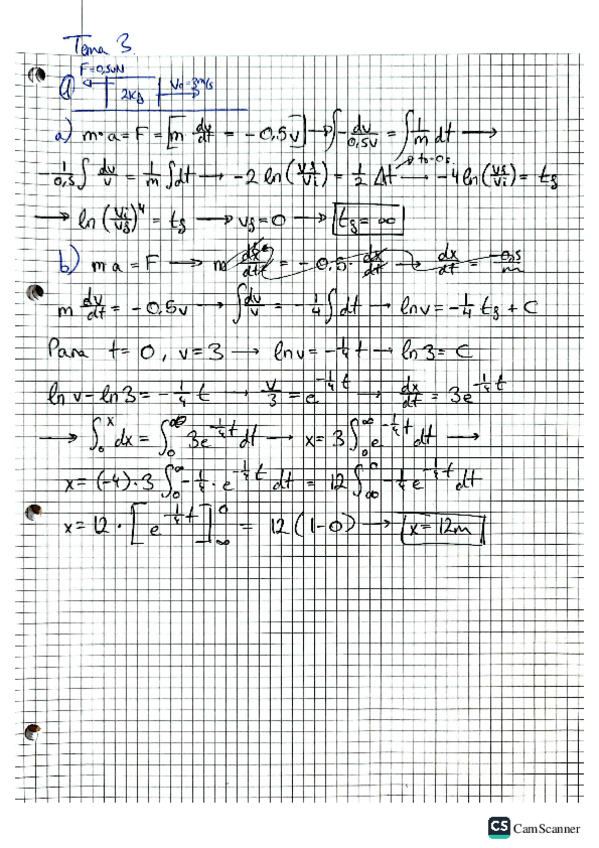 Tema 3.
F=0,5vN
① 2Kg V₀=3m/s
a) m·a = F = [m dv/dt = -0,5v] → ∫-dv/0,5v = ∫1/m dt →
-1/0,5 ∫dv/v = 1/m ∫dt → -2 ln(vf/vi) = 1/2 Δt → t₀=0s → -4 ln(vf/vi) = tf
→ ln(vi/vf)⁴ = tf → vf=0 → tf = ∞
b) m a = F → m = -0,5 · dx/dt → dx/dt = -0,5/m
m dv/dt = -0,5v → ∫dv/v = -1/4 ∫dt → ln v = -1/4 tf + C
Para t=0, v=3 → ln v = -1/4 t → ln 3 = C
ln v - ln 3 = -1/4 t → v/3 = e^(-1/4 t) → dx/dt = 3e^(-1/4 t)
→ ∫₀ˣ dx = ∫₀^∞ 3e^(-1/4 t) dt → x = 3 ∫₀^∞ e^(-1/4 t) dt →
x = (-4)·3 ∫₀^∞ -1/4 · e^(-1/4 t) dt = 12 ∫_∞^0 -1/4 e^(-1/4 t) dt
x = 12 · [e^(-1/4 t)]_∞^0 = 12 (1-0) → x = 12m
CS CamScanner